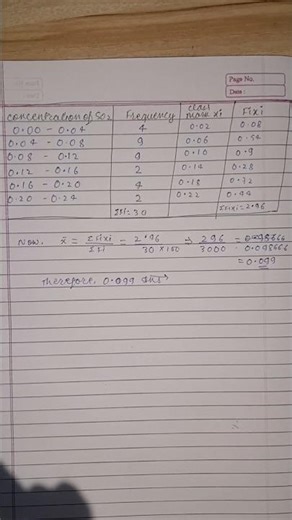 Page No.
Date :
concentration of SO2 Frequency class mark xi Fixi
0.00 - 0.04 4 0.02 0.08
0.04 - 0.08 9 0.06 0.54
0.08 - 0.12 9 0.10 0.9
0.12 - 0.16 2 0.14 0.28
0.16 - 0.20 4 0.18 0.72
0.20 - 0.24 2 0.22 0.44
Σfi = 30 Σfixi = 2.96
Now. x̄ = Σfixi / Σfi - 2.96 / 30 × 100 → 296 / 3000 = 0.098666
0.098666
= 0.099
therefore, 0.099